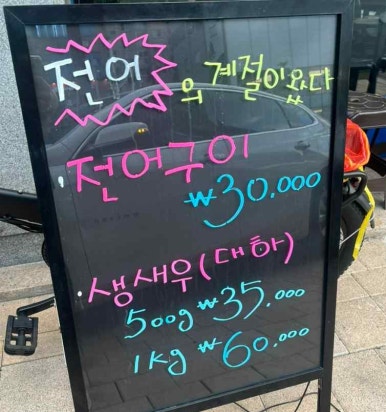 전어의 계절이 왔다
전어구이
₩30.000
생새우(대하)
500g ₩35.000
1kg ₩60.000